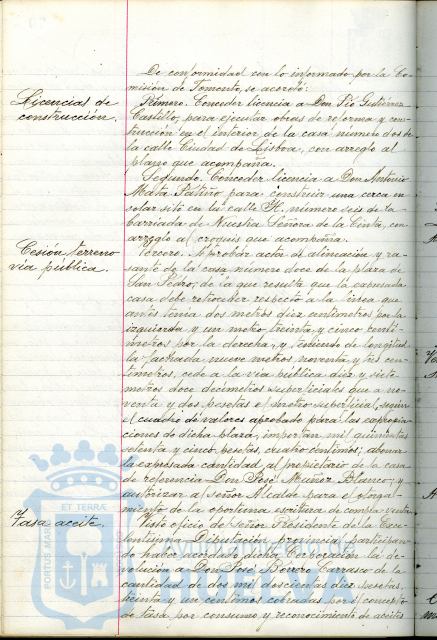 De conformidad con lo informado por la Co-
misión de Fomento, se acordó:
Licencias de
construcción.
Primero. Conceder licencia a Don Pío Gutiérrez
Castillo, para ejecutar obras de reforma y cons-
trucción en el interior de la casa número dos de
la calle Ciudad de Lisboa, con arreglo al
plano que acompaña.
Segundo. Conceder licencia a Don Antonio
Mata Patiño para construir una cerca en
solar sito en la calle H. número seis de la
barriada de Nuestra Señora de la Cinta, con
arreglo al croquis que acompaña.
Cesión terreno
vía pública.
Tercero. Aprobar acta de alineación y ra-
sante de la casa número doce de la plaza de
San Pedro, de la que resulta que la expresada
casa debe retroceder respecto a la línea que
antes tenía dos metros diez centímetros por la
izquierda y un metro treinta y cinco centí-
metros por la derecha, y siendo de longitud
la fachada nueve metros noventa y tres cen-
tímetros, cede a la vía pública diez y siete
metros doce decímetros superficiales que a no-
venta y dos pesetas el metro superficial, según
el cuadro de valores aprobado para las expropia-
ciones de dicha plaza, importan mil quinientas
setenta y cinco pesetas, cuatro céntimos; abonar
la expresada cantidad al propietario de la casa
de referencia Don José Muñoz Blanco, y
autorizar al Señor Alcalde para el otorga-
miento de la oportuna escritura de compra-venta.
Tasa aceite.
Visto oficio del Señor Presidente de la Exce-
lentísima Diputación provincial participan-
do haber acordado dicha Corporación la de-
volución a Don José Borrero Carrasco de la
cantidad de dos mil doscientas diez pesetas,
treinta y un céntimos cobradas por el concepto
de tasa por consumo y reconocimiento de aceites
PORTUS MARIS
ET TERRÆ